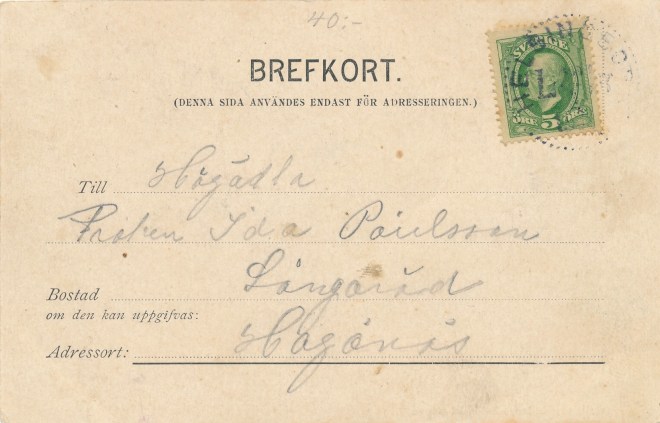 40:-
BREFKORT.
(DENNA SIDA ANVÄNDES ENDAST FÖR ADRESSERINGEN.)
SVERIGE
ÖRE 5 ÖRE
Till Högädla
Fröken Ida Paulsson
Bostad Långaröd
om den kan uppgifvas:
Adressort: Höganäs